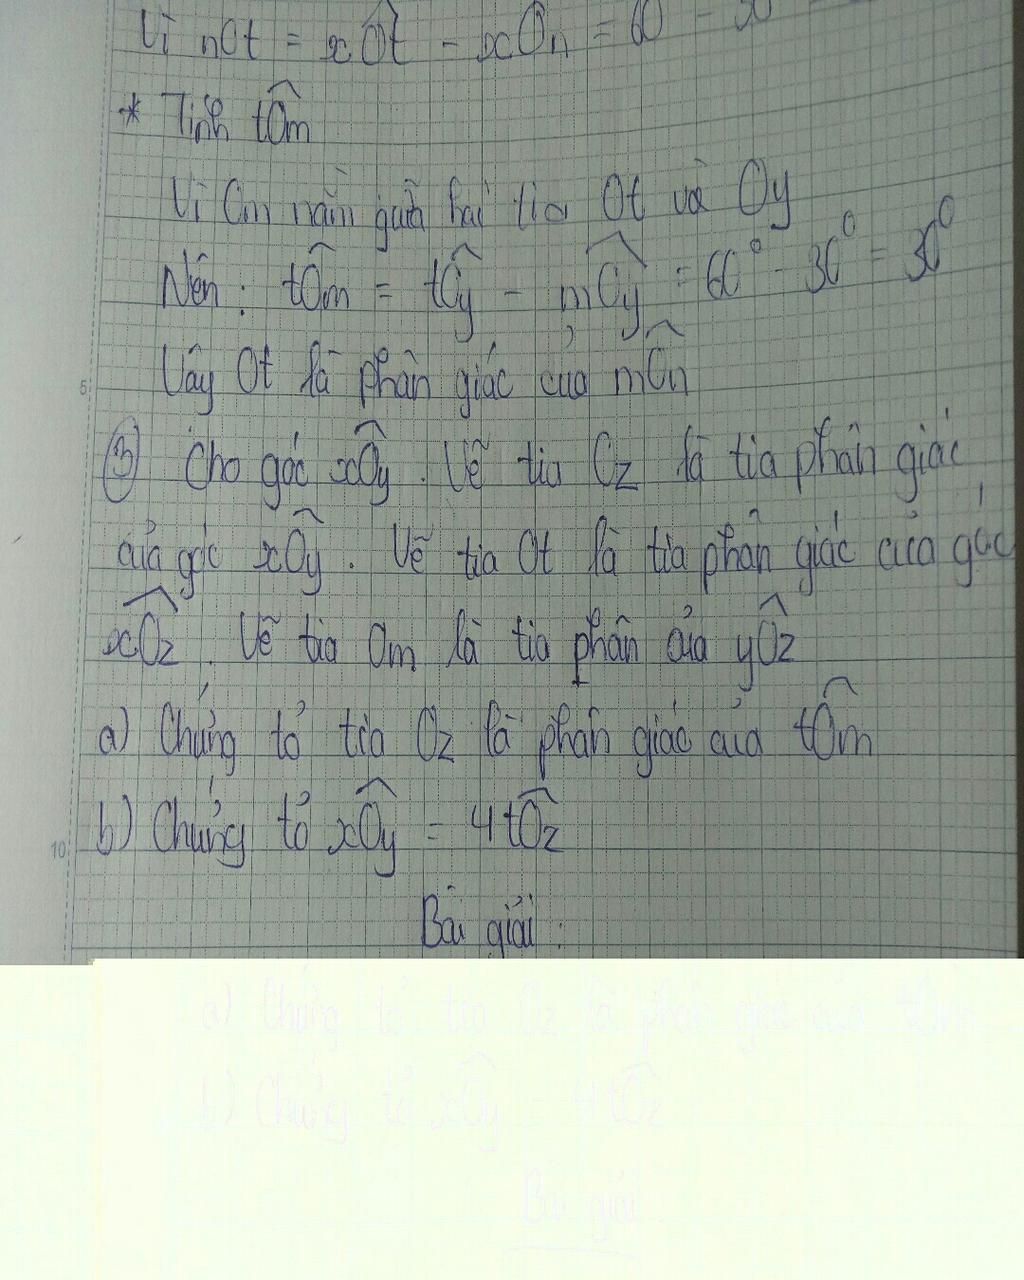 Vì nOt = xOt - xOn = 60 - 30
* Tính tOm
Vì Om nằm giữa hai tia Ot và Oy
Nên: tOm = tOy - mOy = 60° - 30° = 30°
Vậy Ot là phân giác của mOn
5
③ Cho góc xOy. Vẽ tia Oz là tia phân giác
của góc xOy. Vẽ tia Ot là tia phân giác của góc
xOz. Vẽ tia Om là tia phân của yOz
a) Chứng tỏ tia Oz là phân giác của tOm
b) Chứng tỏ xOy = 4tOz
10
Bài giải:
a) Chứng tỏ tia Oz là phân giác của tOm
b) Chứng tỏ xOy = 4tOz
Bài giải